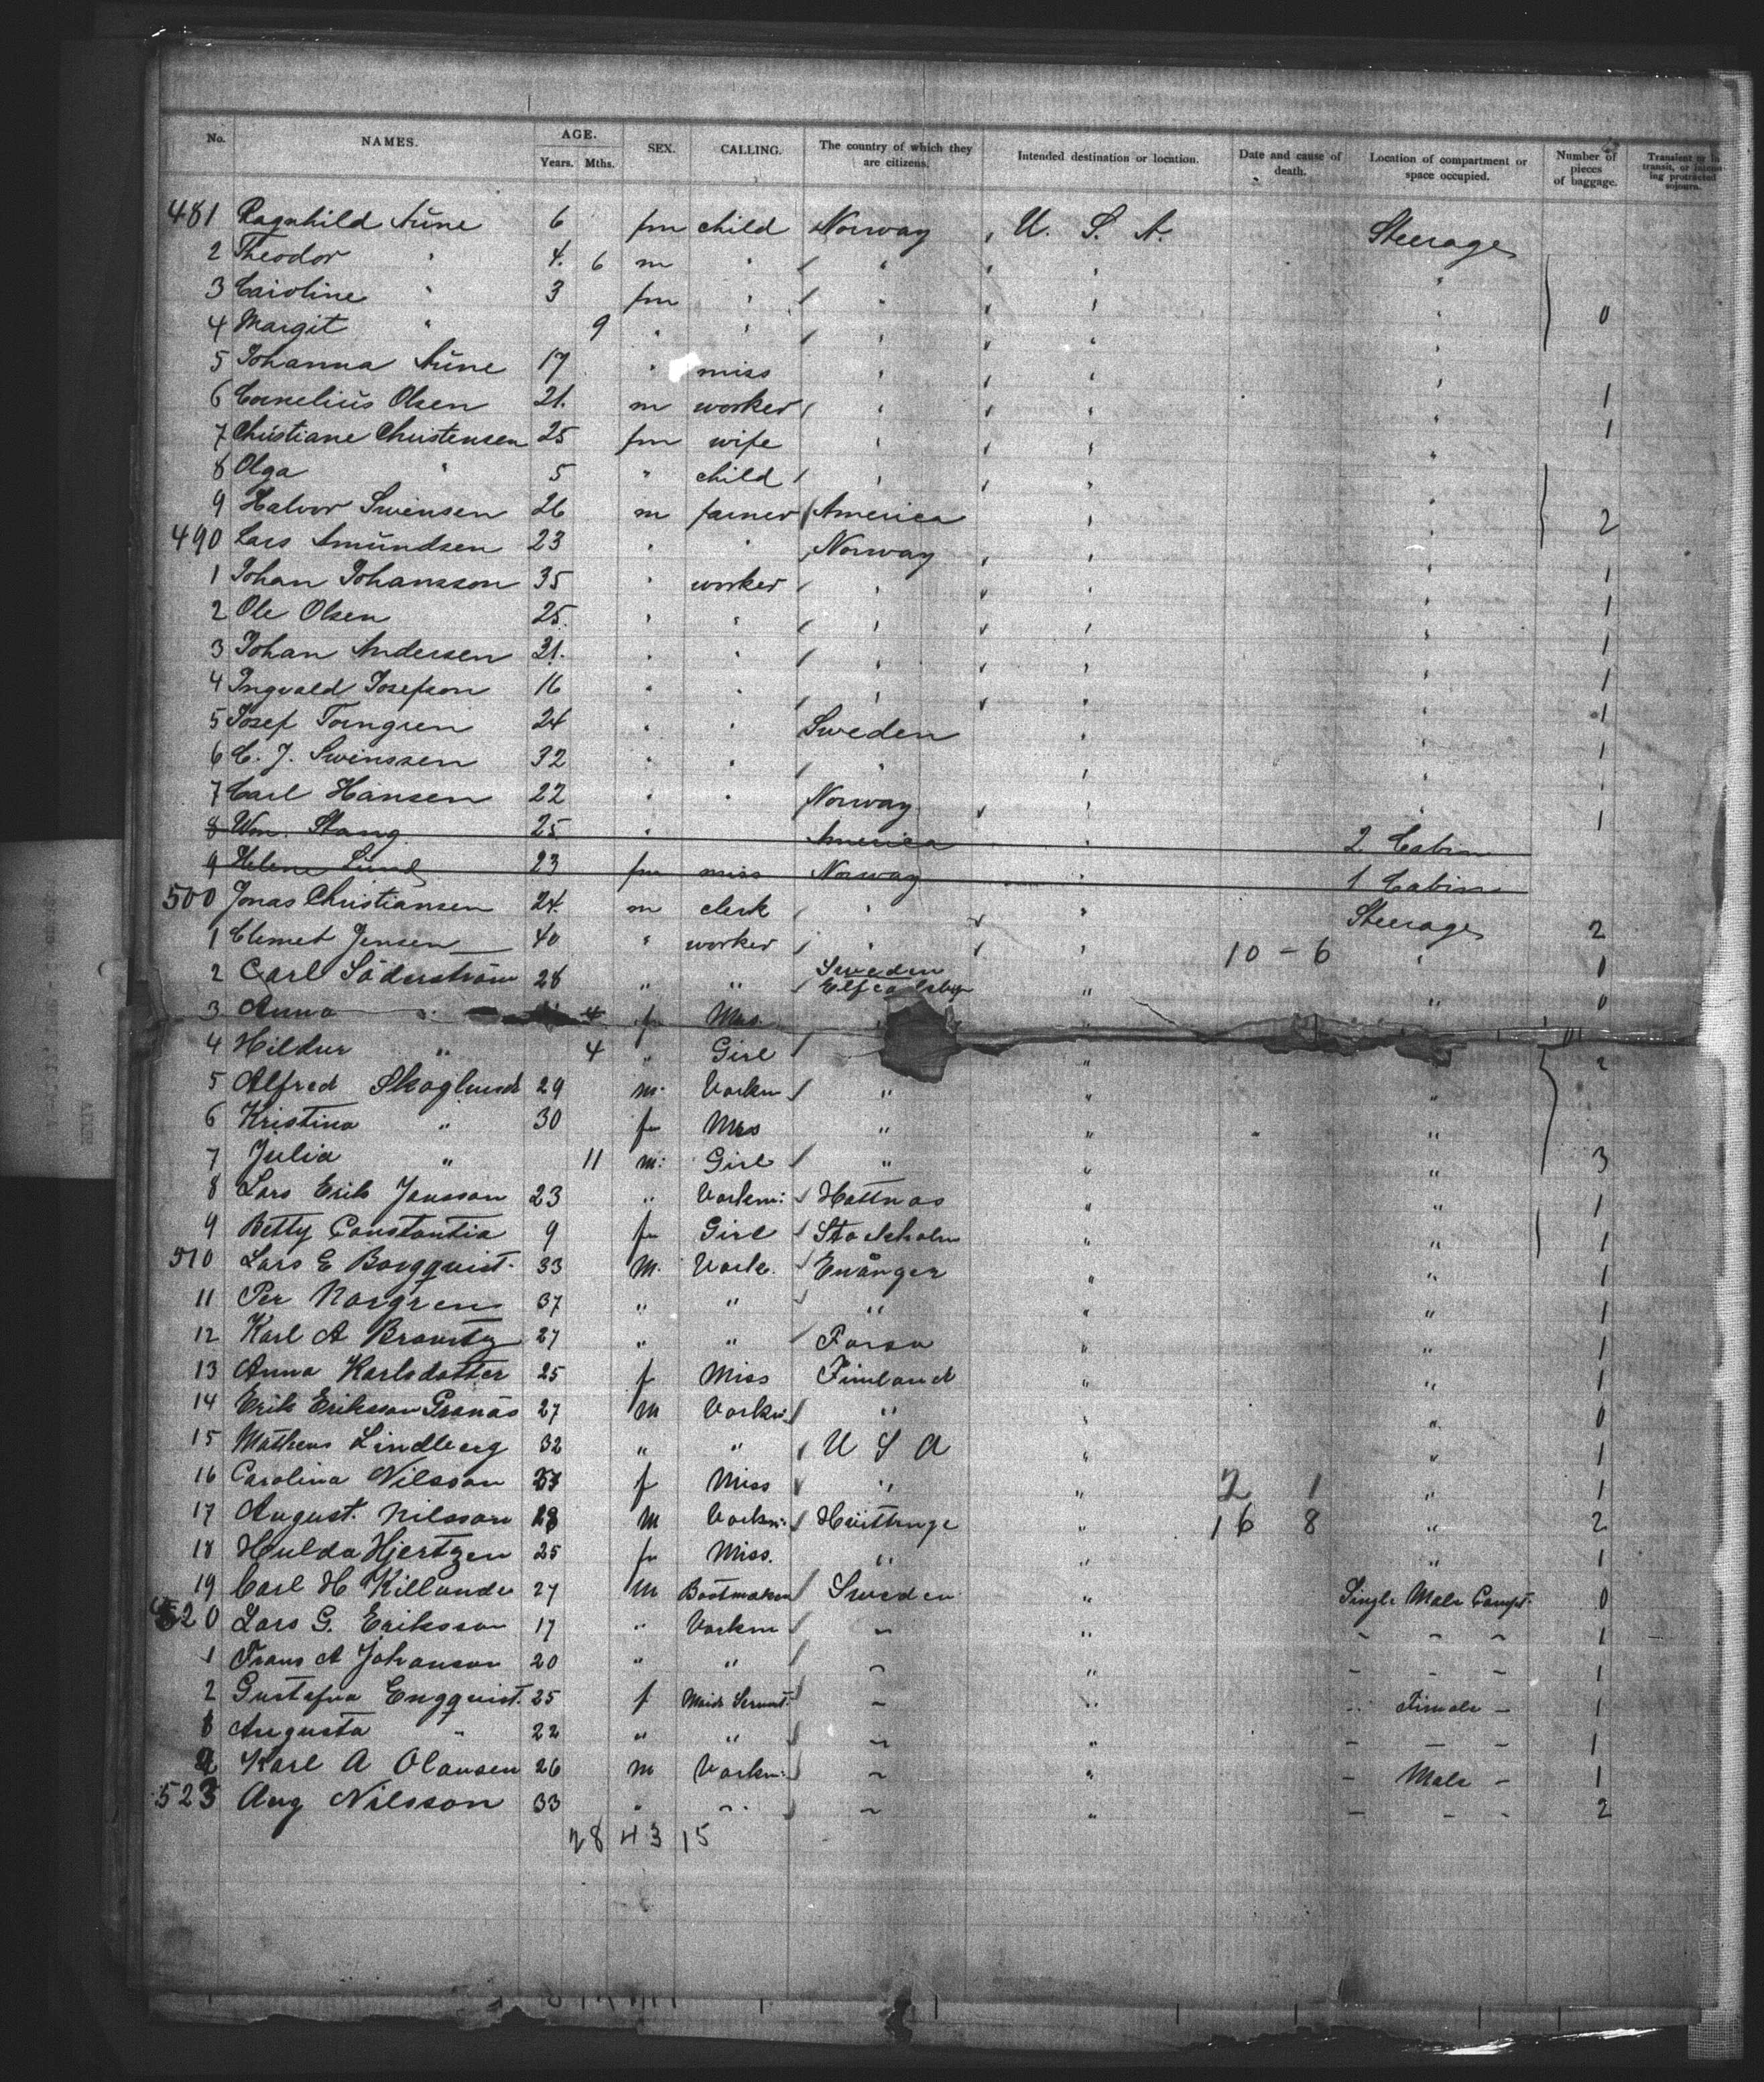 No. NAMES. AGE. Years. Mths. SEX. CALLING. The country of which they are citizens. Intended destination or location. Date and cause of death. Location of compartment or space occupied. Number of pieces of baggage. Transient or in transit, or intending protracted sojourn.
481 Ragnhild Aune 6 fm child Norway U. S. A. Steerage
2 Theodor " 4. 6 m " " " "
3 Caroline " 3 fm " " " " 0
4 Margit " 9 " " " " "
5 Johanna Aune 17 " miss " " "
6 Cornelius Olsen 21. m worker " " " 1
7 Christiane Christensen 25 fm wife " " " 1
8 Olga " 5 " child " " "
9 Halvor Swensen 26 m farmer America " " 2
490 Lars Amundsen 23 " " Norway " "
1 Johan Johansson 35 " worker " " " 1
2 Ole Olsen 25. " " " " " 1
3 Johan Andersen 21. " " " " " 1
4 Ingvald Josefson 16 " " " " " 1
5 Josef Torngren 24 " " Sweden " " 1
6 C. J. Swenssen 32 " " " " " 1
7 Carl Hansen 22 " " Norway " " 1
8 Wm. Stang 25 " America " 2 Cabin
9 Helene Lund 23 fm miss Norway " 1 Cabin
500 Jonas Christiansen 24. m clerk " " Steerage 2
1 Clemet Jensen 40 " worker " " 10 - 6 "
2 Carl Söderström 28 " " Sweden Elfcarleby " " 0
3 Anna " 4 f Mrs. "
4 Hildur " 4 " Girl " 2
5 Alfred Skoglund 29 m. Workm " " "
6 Kristina " 30 f Mrs " " "
7 Julia " 11 m. Girl " " " 3
8 Lars Erik Jansson 23 " Workm: Hattnas " " 1
9 Betty Constantia 9 f Girl Stockholm " " 1
510 Lars E Borgquist. 33 M. Work. Enånger " " 1
11 Per Norgren 37 " " " " " 1
12 Karl A 27 " " Forsa " " 1
13 Anna Karlsdotter 25 f Miss Finland " " 1
14 Erik Eriksson Granås 27 M Workm " " " 0
15 Matheus Lindberg 32 " " U S A " " 1
16 Carolina Nilsson f Miss " " 2 1 " 1
17 August. Nilsson 28 M Workm: " 16 8 " 2
18 Hulda Hjertzen 25 f Miss. " " " 1
19 Carl H Killander 27 M Bootmaker Sweden " Single Male Compt. 0
520 Lars G. Eriksson 17 " Workm " " " " " 1
1 Frans A Johanson 20 " " " " " " " 1
2 Gustafva Engquist. 25 f Maid Servant " " " Female " 1
3 Augusta " 22 " " " " " " " 1
4 Karl A Olausen 26 m Workm: " " " Male " 1
523 Aug Nilsson 33 " " " " " " " 2
28 43 15